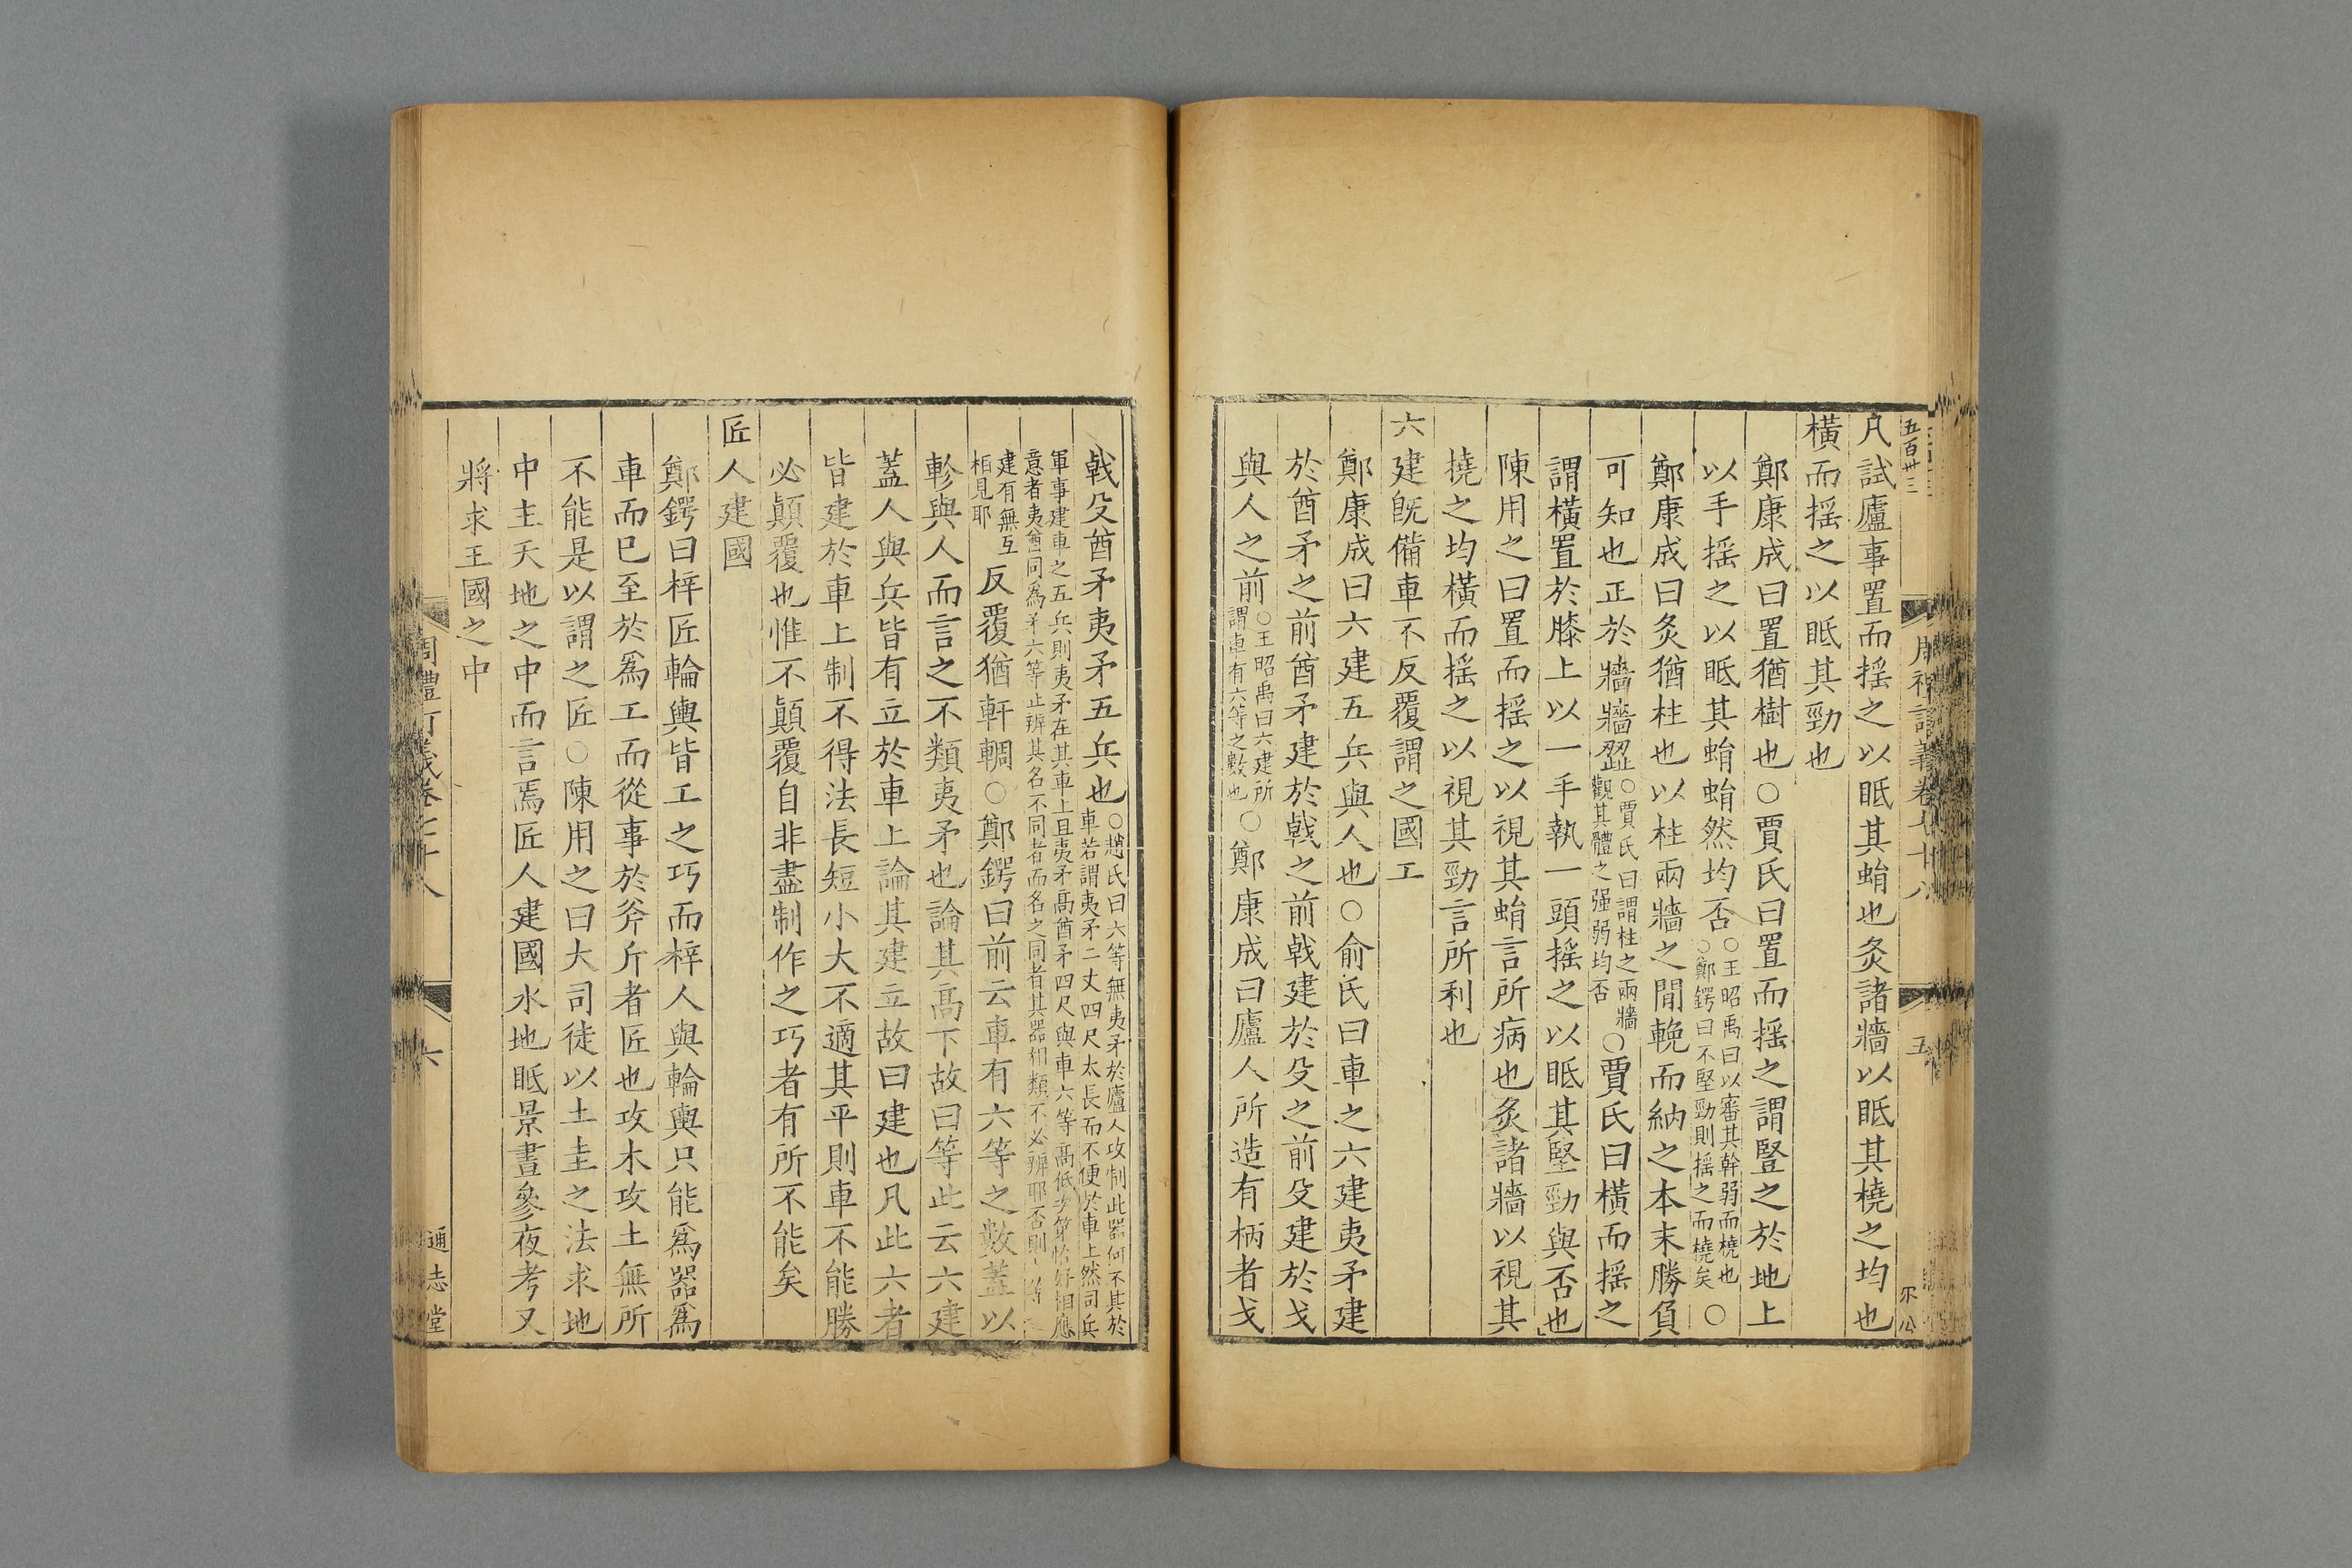 五百卅三
凡試廬事置而揺之以眡其蜎也灸諸牆以眡其橈之均也
橫而揺之以眡其勁也
鄭康成曰置猶樹也○賈氏曰置而揺之謂豎之於地上
以手揺之以眡其蜎蜎然均否○王昭禹曰以審其幹弱而橈也○鄭鍔曰不堅勁則揺之而橈矣○
鄭康成曰灸猶柱也以柱兩牆之閒輓而納之本末勝負
可知也正於牆牆歰○賈氏曰謂柱之兩牆觀其體之强弱均否○賈氏曰橫而揺之
謂橫置於膝上以一手執一頭揺之以眡其堅勁與否也
陳用之曰置而揺之以視其蜎言所病也灸諸牆以視其
撓之均橫而揺之以視其勁言所利也
六建旣備車不反覆謂之國工
鄭康成曰六建五兵與人也○俞氏曰車之六建夷矛建
於酋矛之前酋矛建於戟之前戟建於殳之前殳建於戈
與人之前○王昭禹曰六建所謂車有六等之數也○鄭康成曰廬人所造有柄者戈
五
戟殳酋矛夷矛五兵也○趙氏曰六等無夷矛於廬人攻制此器何不其於車若謂夷矛二丈四尺太長而不便於車上然司兵
軍事建車之五兵則夷矛在其車上且夷矛髙酋矛四尺與車六等髙低恰好相應意者夷酋同爲矛六等止辨其名不同者而名之同者其器相類不必辨耶否則
建有無互相見耶反覆猶軒輖○鄭鍔曰前云車有六等之數蓋以
軫與人而言之不類夷矛也論其髙下故曰等此云六建
蓋人與兵皆有立於車上論其建立故曰建也凡此六者
皆建於車上制不得法長短小大不適其平則車不能勝
必顚覆也惟不顚覆自非盡制作之巧者有所不能矣
匠人建國
鄭鍔曰梓匠輪輿皆工之巧而梓人與輪輿只能爲器爲
車而巳至於爲工而從事於斧斤者匠也攻木攻土無所
不能是以謂之匠○陳用之曰大司徒以土圭之法求地
中主天地之中而言焉匠人建國水地眡景晝參夜考又
將求王國之中
六
通志堂